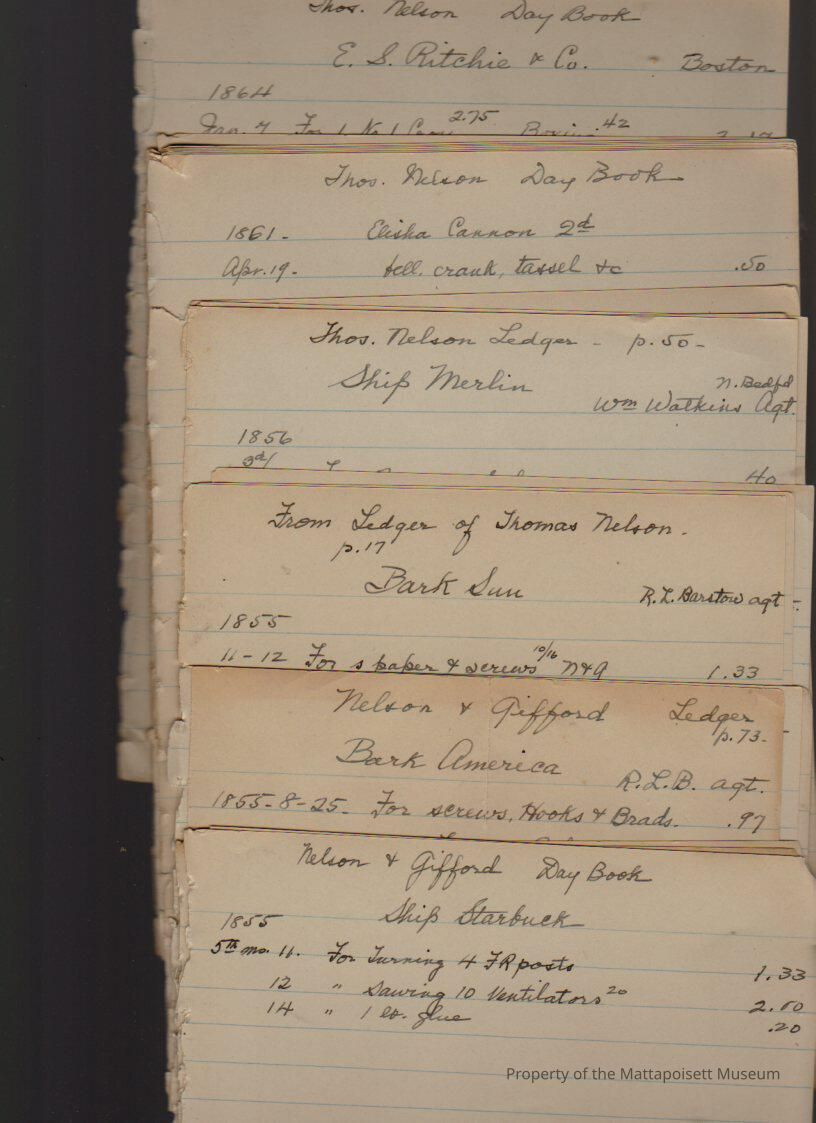 Thos. Nelson Day Book
E. S. Ritchie & Co. Boston
1864
Jan. 7 For 1 No 1 2.75 Boxing .42
Thos. Nelson Day Book
1861 - Elisha Cannon 2d
Apr. 19. - bell, crank, tassel &c .50
Thos. Nelson Ledger - p. 50 -
Ship Merlin N. Bedfd
Wm Watkins Agt.
1856
40
From Ledger of Thomas Nelson.
p. 17
Bark Sun R. L. Barstow agt -
1855
11-12 For s paper & screws 10/16 N&G 1.33
Nelson & Gifford Ledger
p. 73. -
Bark America R.L.B. agt.
1855-8-25. For screws, Hooks & Brads. .97
Nelson & Gifford Day Book
1855 Ship Starbuck
5th mo. 11. For Turning 4 FR posts 1.33
12 " Sawing 10 Ventilators 20 2.00
14 " 1 lb. glue .20
Property of the Mattapoisett Museum